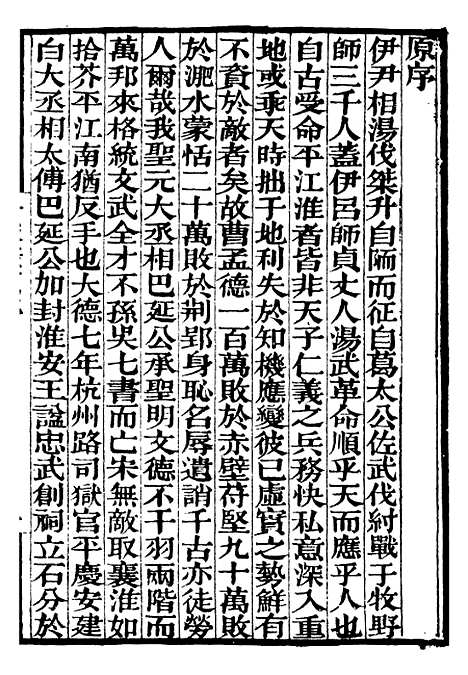 原序
伊尹相湯伐桀升自陑而征自葛太公佐武伐紂戰于牧野
師三千人蓋伊呂師貞丈人湯武革命順乎天而應乎人也
自古受命平江淮者皆非天子仁義之兵務快私意深入重
地或乖天時拙于地利失於知機應變彼已虛實之勢鮮有
不資於敵者矣故曹孟德一百萬敗於赤壁苻堅九十萬敗
於淝水蒙恬二十萬敗於荆郢身恥名辱遺誚千古亦徒勞
人爾哉我聖元大丞相巴延公承聖明文德不干羽兩階而
萬邦來格統文武全才不孫吳七書而亡宋無敵取襄淮如
拾芥平江南猶反手也大德七年杭州路司獄官平慶安建
白大丞相太傅巴延公加封淮安王諡忠武創祠立石分於